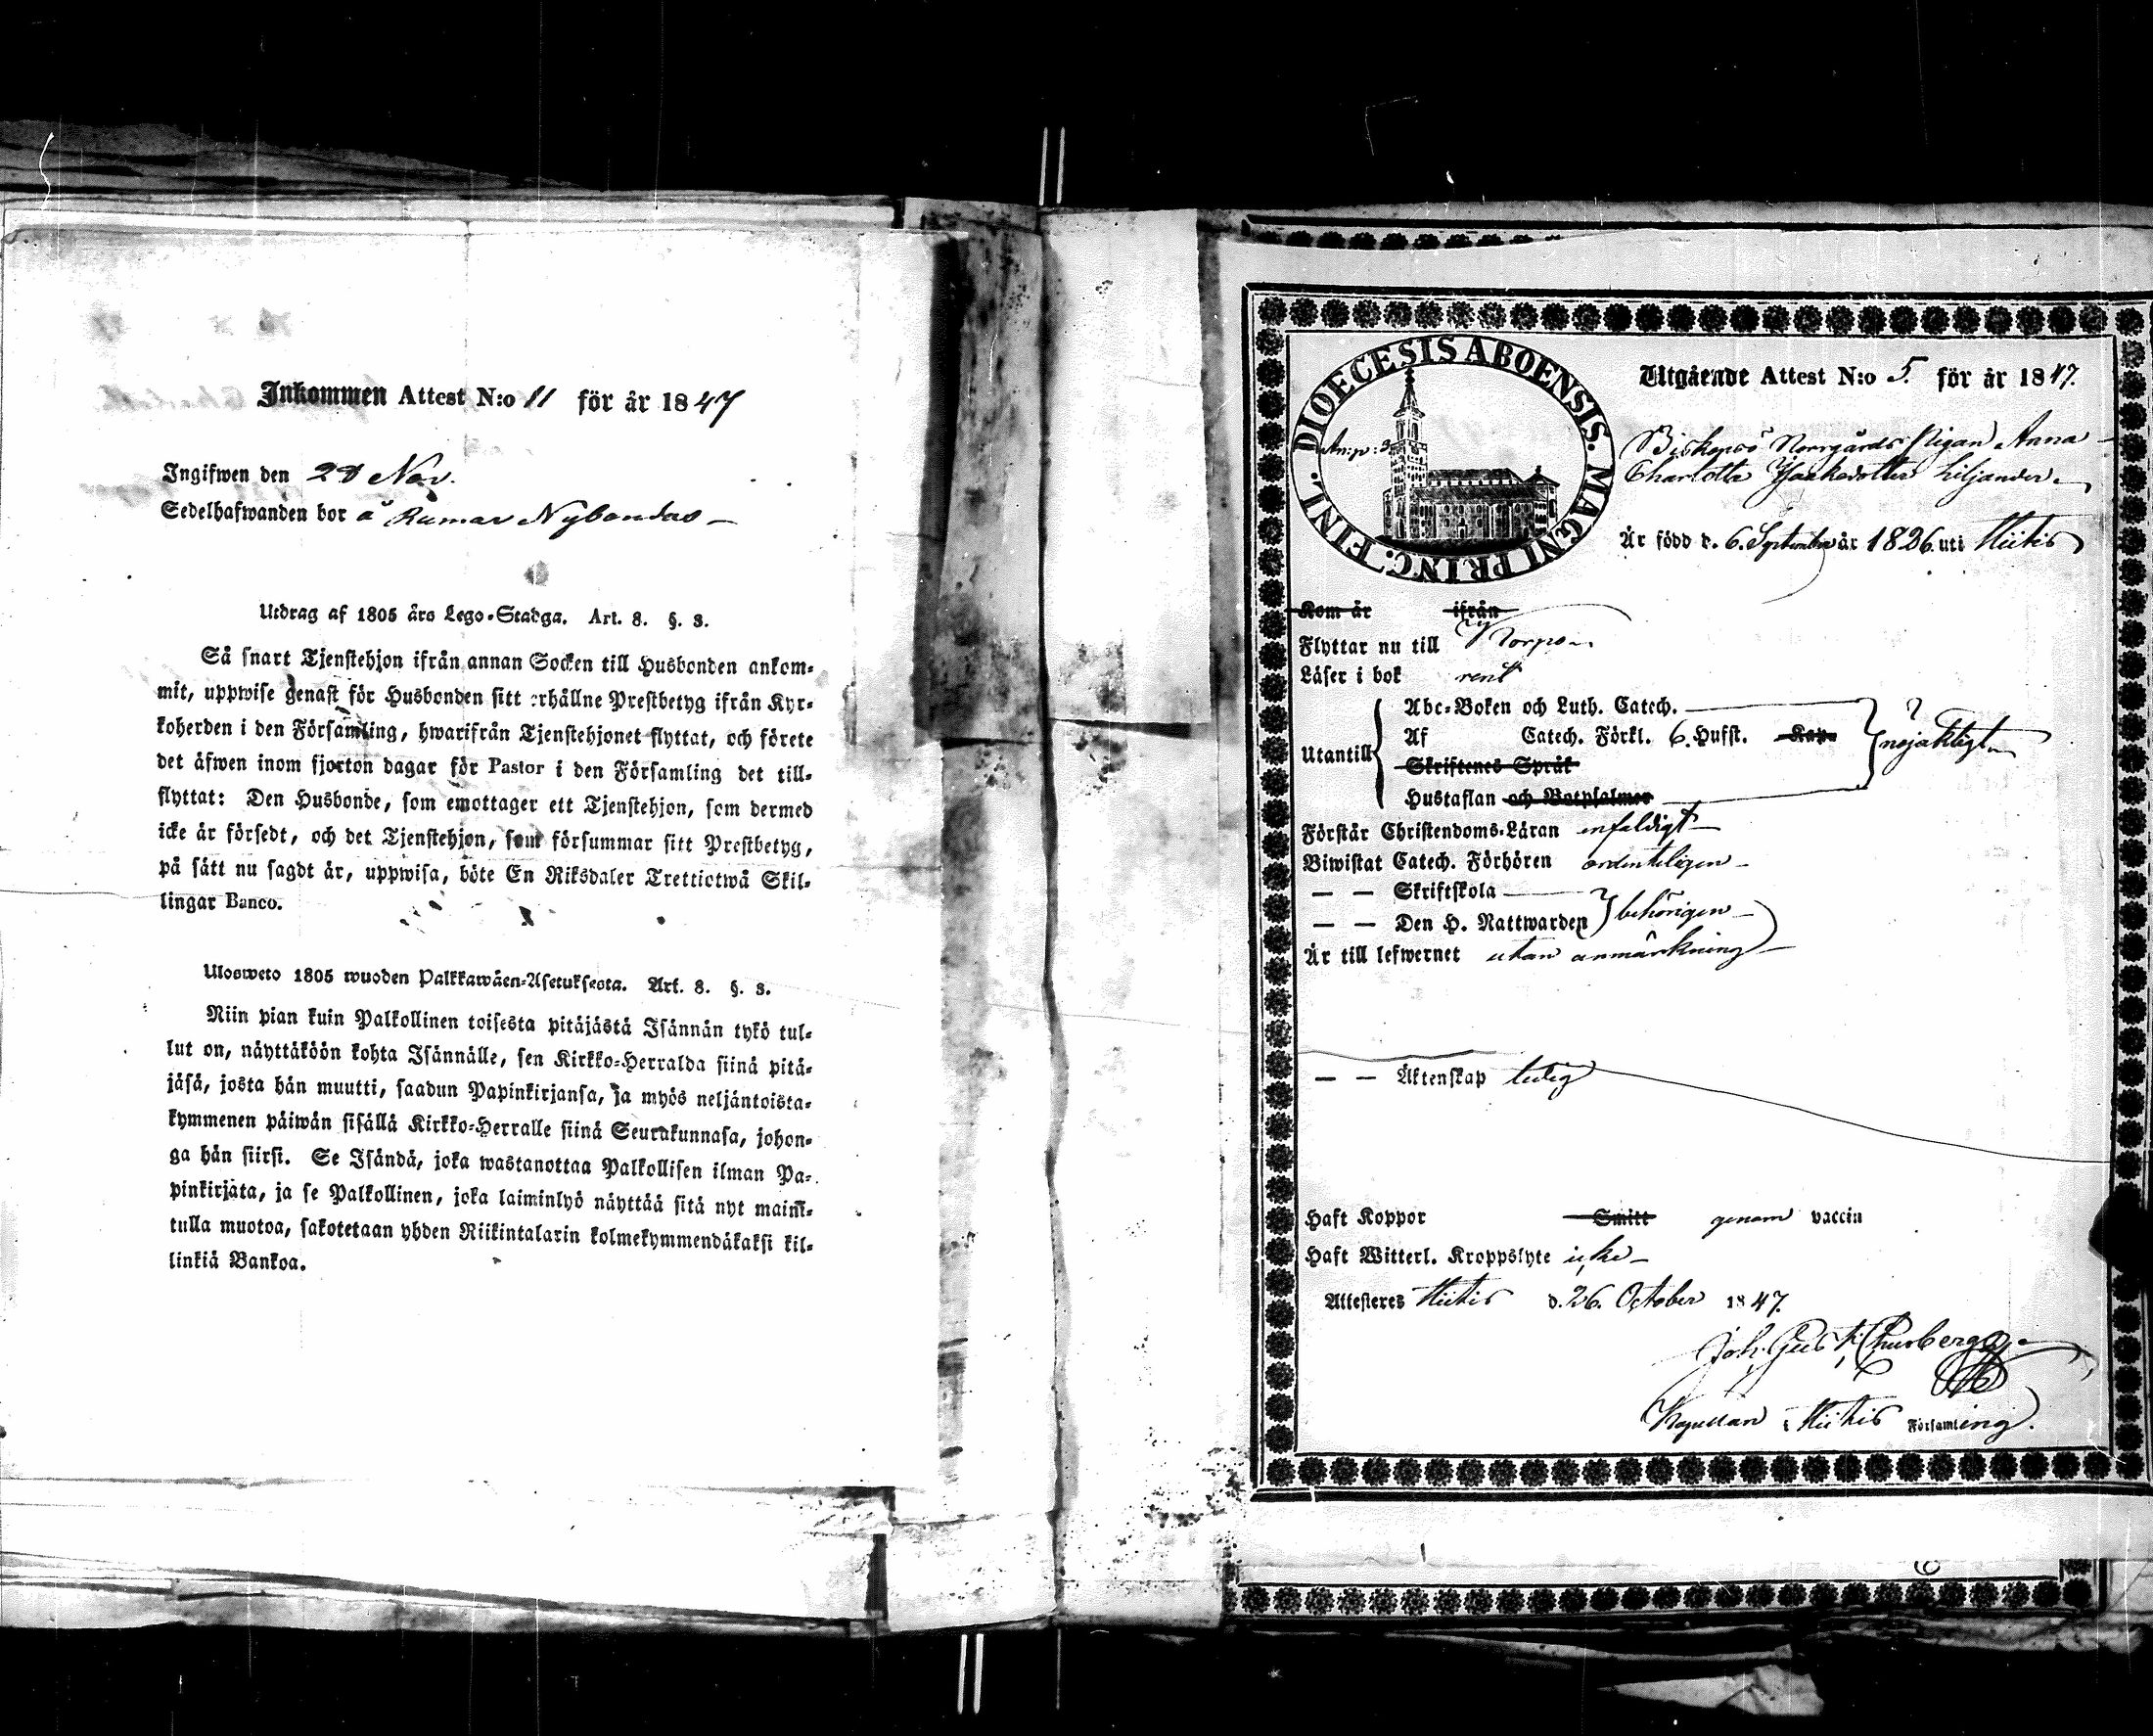 Inkommen Attest N:o 11 för år 1847
Ingifwen den 28 Nov.
Sedelhafwanden bor å Rumar Nybondas
Utdrag af 1805 års Lego-Stadga. Art. 8. §. 3.
Så snart Tjenstehjon ifrån annan Socken till Husbonden ankom-
mit, uppwise genast för Husbonden sitt erhållne Prestbetyg ifrån Kyr-
koherden i den Församling, hwarifrån Tjenstehjonet flyttat, och förete
det äfwen inom fjorton dagar för Pastor i den Församling det till-
flyttat: Den Husbonde, som emottager ett Tjenstehjon, som dermed
icke är försedt, och det Tjenstehjon, som försummar sitt Prestbetyg,
på sätt nu sagdt är, uppwisa, böte En Riksdaler Trettiotwå Skil-
lingar Banco.
Ulosweto 1805 wuoden Palkkawäen-Asetuksesta. Art. 8. §. 3.
Niin pian kuin Palkollinen toisesta pitäjästä Isännän tykö tul-
lut on, näyttäköön kohta Isännälle, sen Kirkko-Herralda siinä pitä-
jäsä, josta hän muutti, saadun Papinkirjansa, ja myös neljäntoista-
kymmenen päiwän sisällä Kirkko-Herralle siinä Seurakunnasa, johon-
ga hän siirsi. Se Isändä, joka wastanottaa Palkollisen ilman Pa-
pinkirjata, ja se Palkollinen, joka laiminlyö näyttää sitä nyt mainit-
tulla muotoa, sakotetaan yhden Riikintalarin kolmekymmendäkaksi kil-
linkiä Bankoa.
DIOECESIS ABOENSIS. MAGNI PRINC. FINL.
An: p: 3
Utgående Attest N:o 5. för år 1847.
Biskopsö Norrgårds Pigan Anna
Charlotta Isaksdotter Liljander
Är född d. 6. September år 1826. uti Hitis
Kom år ifrån
Flyttar nu till Korpo
Läser i bok rent
Abc-Boken och Luth. Catech.
Utantill Af Catech. Förkl. 6. Hufst. Kap. nöjaktigt
Skriftenes Språk
Hustaflan och Botpsalmer
Förstår Christendoms-Läran enfaldigt
Biwistat Catech. Förhören ordenteligen
— — Skriftskola
— — Den H. Nattwarden behörigen
Är till lefwernet utan anmärkning
— — Äktenskap ledig
Haft Koppor Smitt genom vaccin
Haft Witterl. Kroppslyte icke
Attesteres Hitis d. 26. October 1847.
Joh. Gust. Thurberg
Kapellan i Hitis Församling.